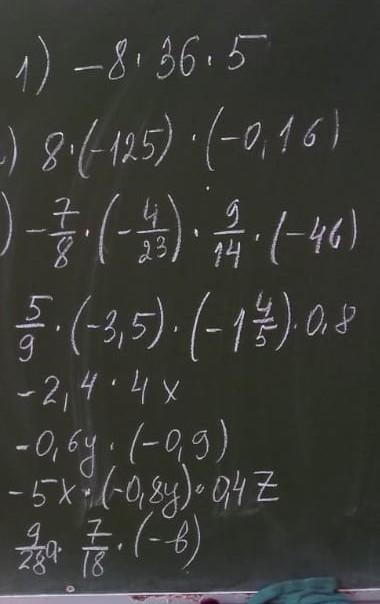 1) -8 · 36 · 5
) 8 · (-125) · (-0,16)
) -7/8 · (-4/23) · 9/14 · (-46)
5/9 · (-3,5) · (-1 4/5) · 0,8
-2,4 · 4x
-0,6y · (-0,9)
-5x · (-0,8y) · 0,4z
9/28 a · 7/18 · (-b)